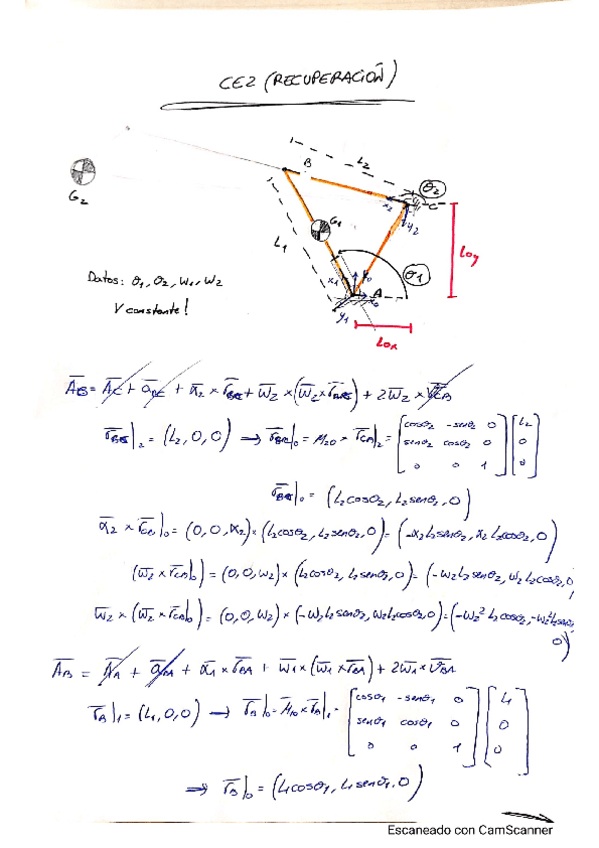 CE2 (RECUPERACIÓN)
B
L2
θ2
x2
y2
C
G2
G1
L1
Loy
θ1
Datos: θ1, θ2, w1, w2
V constante!
x1
y1
A
x0
Lox
A̅B = A̅C + a̅BC + α̅2 × r̅BC + w̅2 × (w̅2 × r̅BC) + 2w̅2 × v̅CB
r̅BC|2 = (L2, 0, 0) → r̅BC|0 = μ20 × r̅CB|2 = [cosθ2 -senθ2 0] [L2]
[senθ2 cosθ2 0] [0]
[0 0 1] [0]
r̅BC|0 = (L2cosθ2, L2senθ2, 0)
α̅2 × r̅CB|0 = (0, 0, α2) × (L2cosθ2, L2senθ2, 0) = (-α2L2senθ2, α2L2cosθ2, 0)
(w̅2 × r̅CB|0) = (0, 0, w2) × (L2cosθ2, L2senθ2, 0) = (-w2L2senθ2, w2L2cosθ2, 0
w̅2 × (w̅2 × r̅CB|0) = (0, 0, w2) × (-w2L2senθ2, w2L2cosθ2, 0) = (-w2²L2cosθ2, -w2²L2sen
0)
A̅B = A̅A + a̅BA + α̅1 × r̅BA + w̅1 × (w̅1 × r̅BA) + 2w̅1 × v̅BA
r̅B|1 = (L1, 0, 0) → r̅B|0 = μ̅10 × r̅B|1 = [cosθ1 -senθ1 0] [L1]
[senθ1 cosθ1 0] [0]
[0 0 1] [0]
⇒ r̅B|0 = (L1cosθ1, L1senθ1, 0)
Escaneado con CamScanner